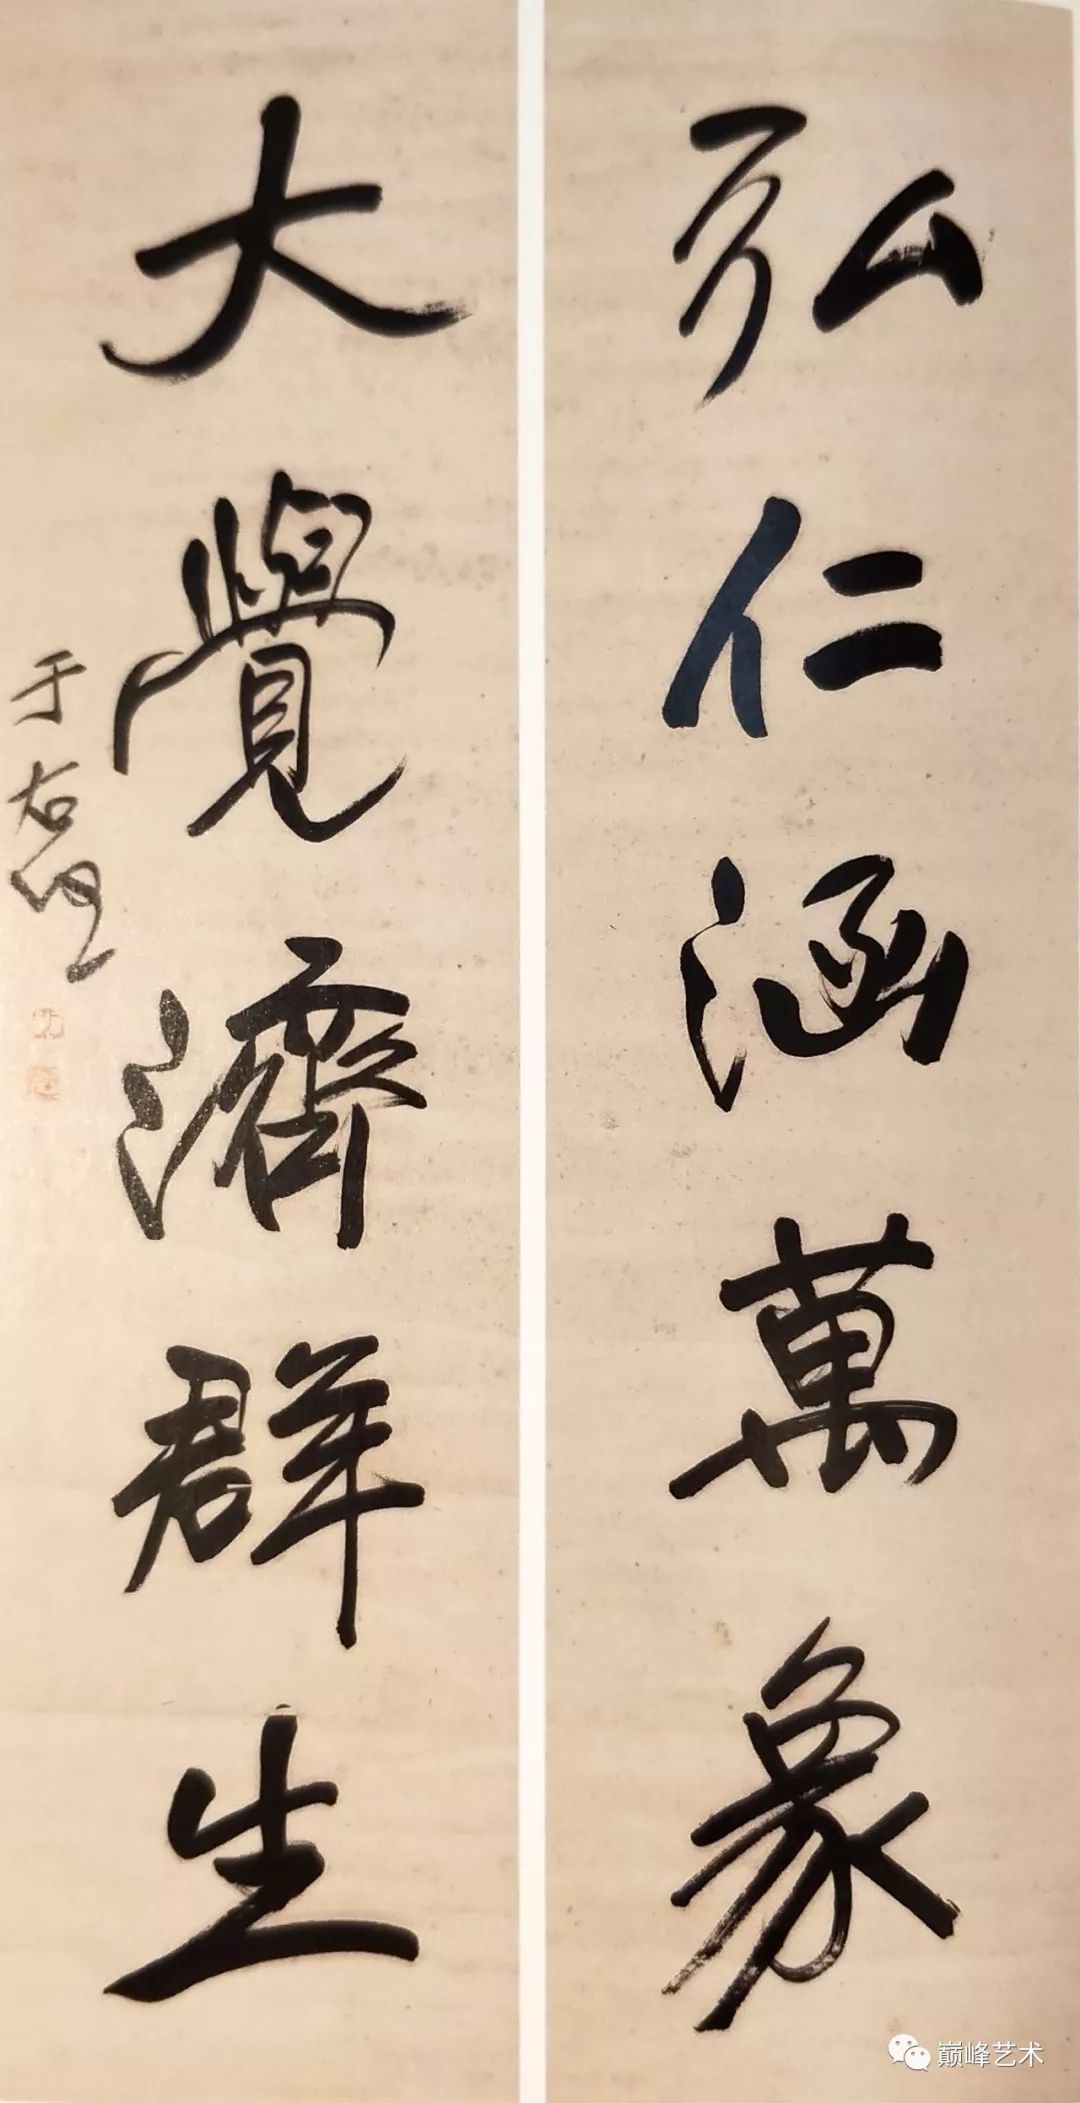 弘仁涵萬象
大覺濟群生
于右任
巅峰艺术